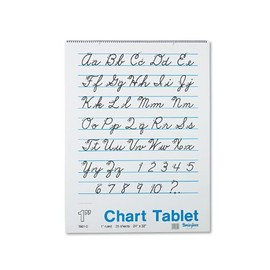 Aa Bb Cc Dd Ee
Ff Gg Hh Ii Jj
Kk Ll Mm Nn
Oo Pp Qq Rr Ss
Tt Uu Vv Ww Xx
Yy Zz 1 2 3 4 5
6 7 8 9 10 !?.
1" Chart Tablet